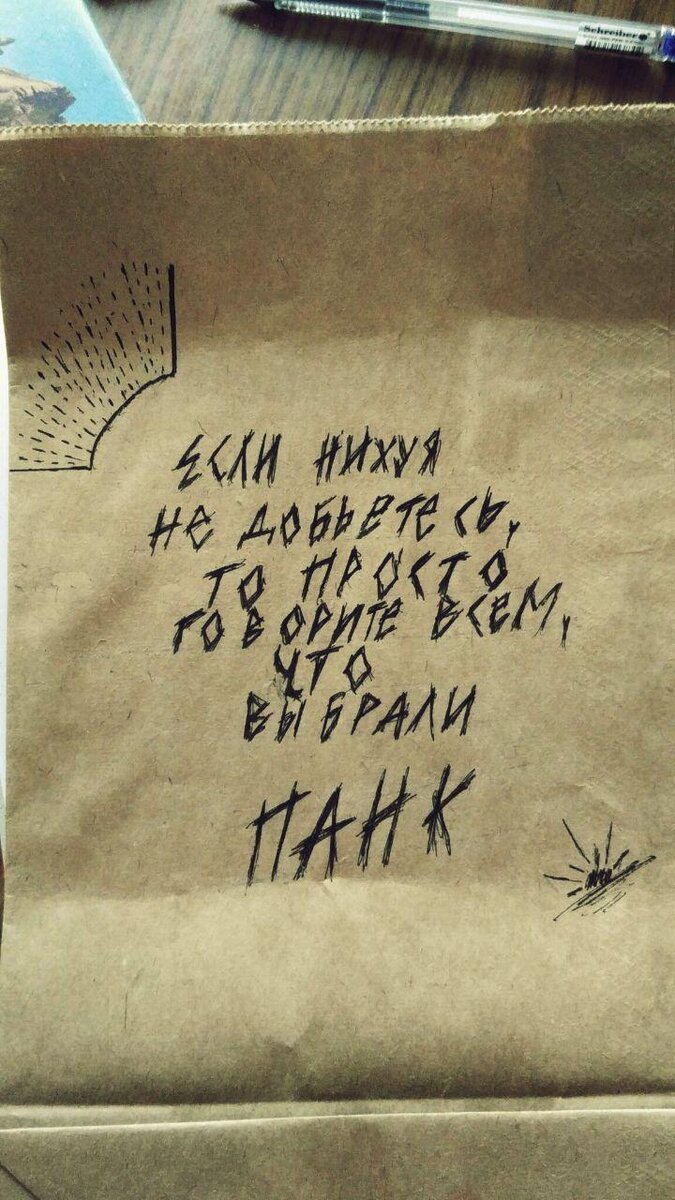 Schreiber
ЕСЛИ НИХУЯ
НЕ ДОБЬЕТЕСЬ,
ТО ПРОСТО
ГОВОРИТЕ ВСЕМ,
ЧТО
ВЫБРАЛИ
ПАНК